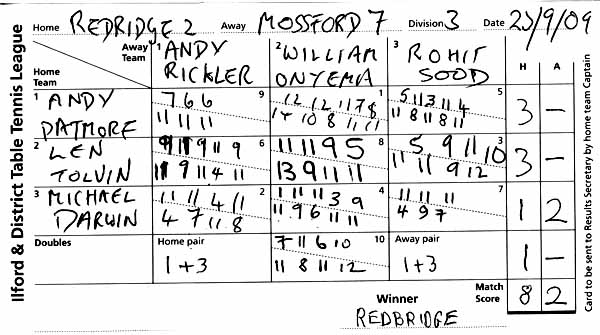 Ilford & District Table Tennis League
Home REDRIDGE 2 Away MOSSFORD 7 Division 3 Date 25/9/09
Home Team Away Team 1 ANDY RICKLER 2 WILLIAM ONYEMA 3 ROHIT SOOD H A
1 ANDY PATMORE 9 1 5 3 –
7 6 6 12 12 11 7 8 5 11 3 11 4
11 11 11 14 10 8 11 11 11 8 11 8 11
2 LEN TOLVIN 6 8 3 3 –
9 11 9 11 9 11 11 9 5 5 9 11 10
11 9 11 4 11 13 9 11 11 11 11 9 12
3 MICHAEL DARWIN 2 4 7 1 2
11 11 4 11 4 11 11 3 9 11 11 11
4 7 11 8 11 9 6 11 11 4 9 7
Doubles Home pair 10 Away pair 1 –
1+3 7 11 6 10 1+3
11 8 11 12
Winner Match Score 8 2
REDBRIDGE
Card to be sent to Results Secretary by home team Captain